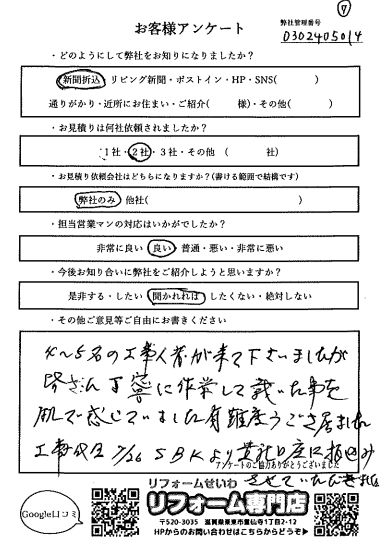 ⑦
お客様アンケート
弊社管理番号
0302405014
・どのようにして弊社をお知りになりましたか？
新聞折込 リビング新聞・ポストイン・HP・SNS( )
通りがかり・近所にお住まい・ご紹介( 様)・その他( )
・お見積りは何社依頼されましたか？
1社・2社・3社・その他 ( 社)
・お見積り依頼会社はどちらになりますか？(書ける範囲で結構です)
弊社のみ 他社( )
・担当営業マンの対応はいかがでしたか？
非常に良い 良い 普通・悪い・非常に悪い
・今後お知り合いに弊社をご紹介しようと思いますか？
是非する・したい 聞かれれば したくない・絶対しない
・その他ご意見等ご自由にお書きください
4〜5名の工事人者が来て下さいましたが
皆さん丁寧に作業して戴いた事を
肌で感じていました有難度うござ居ました
工事代金 7/26 SBKより貴社口座に振込み
アンケートのご協力ありがとうございました
させていただきました
リフォームせいわ
リフォーム専門店
Google口コミ
〒520-3035 滋賀県栗東市霊仙寺1丁目2-12
HPからのお問い合わせはこちらからどうぞ▶